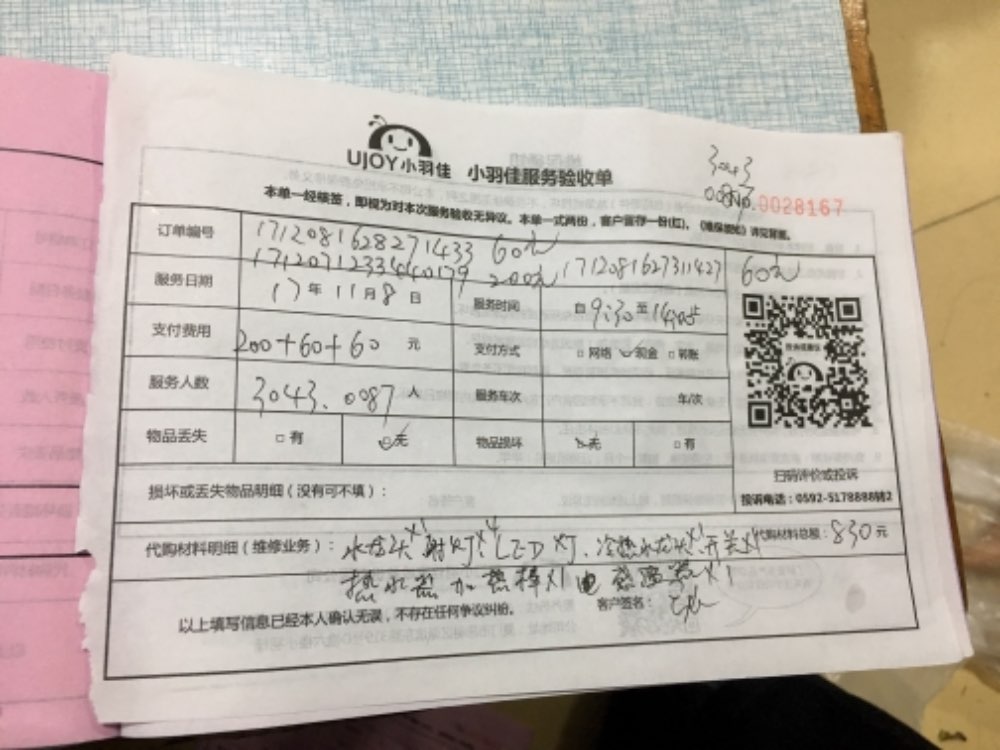 UJOY小羽佳 小羽佳服务验收单
3043
0087
0028167
本单一经核签，即视为对本次服务验收无异议。本单一式两份，客户留存一份(红)。《维保须知》详见背面。
订单编号 17120816282714433 60元
200元 1712081627311427 60元
服务日期 17年11月8日 服务时间 自9:30至14:05
支付费用 200+60+60 元 支付方式 □网络 现金 □转账
服务人数 3043.0087人 服务车次 年/次
物品丢失 □有 无 物品损坏 无 □有
扫码评价或投诉
损坏或丢失物品明细（没有可不填）：
投诉电话：0592-5178888转2
代购材料明细（维修业务）：水龙头x1 射灯x4 LED灯、冷热水龙头x1 开关x1 代购材料总额：830元
热水器加热棒x1 电感温器x1
以上填写信息已经本人确认无误，不存在任何争议纠纷。 客户签名：